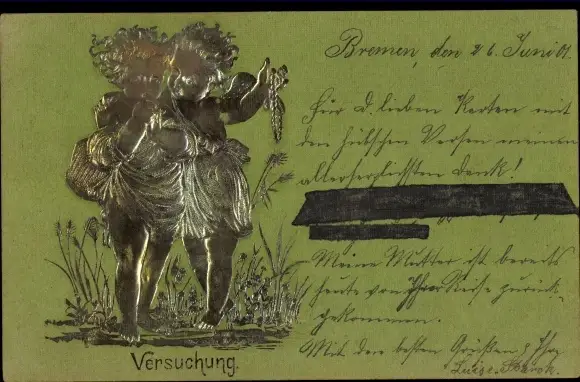 Bremen, den 26. Juni 01.
Für D. lieben Karten mit
den hübschen Versen meinen
allerherzlichsten Dank!
Meine Mutter ist bereits
heute von Ihrer Reise zurück-
gekommen.
Mit den besten Grüßen
Luise
Versuchung.